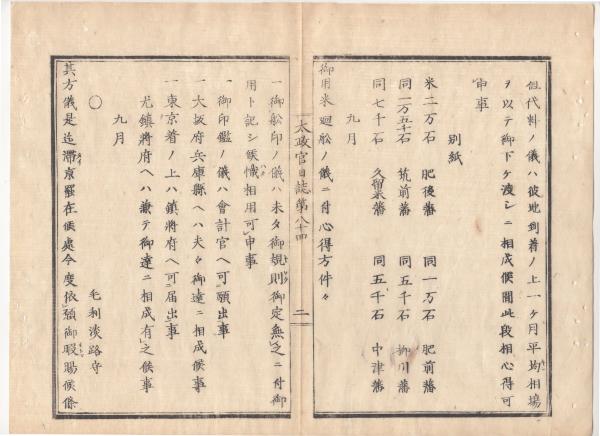 但代料ノ儀ハ彼地到着ノ上一ケ月平均相場
ヲ以テ御下ケ渡シニ相成候間此段相心得可
申事
別紙
米二万石 肥後藩 同一万石 肥前藩
同一万五千石 筑前藩 同五千石 柳川藩
同七千石 久留米藩 同五千石 中津藩
九月
御用米廻船ノ儀ニ付心得方件々
太政官日誌第八十四
二
一御船印ノ儀ハ未タ御規則御定無之ニ付御
用ト記シ候幟相用可申事
一御印鑑ノ儀ハ會計官ヘ可願出事
一大坂府兵庫縣ヘハ夫々御達ニ相成候事
一東京着ノ上ハ鎮將府ヘ可届出事
尤鎮將府ヘハ兼テ御達ニ相成有之候事
九月
○
毛利淡路守
其方儀是迄滞京罷在候處今度依願御暇賜候條